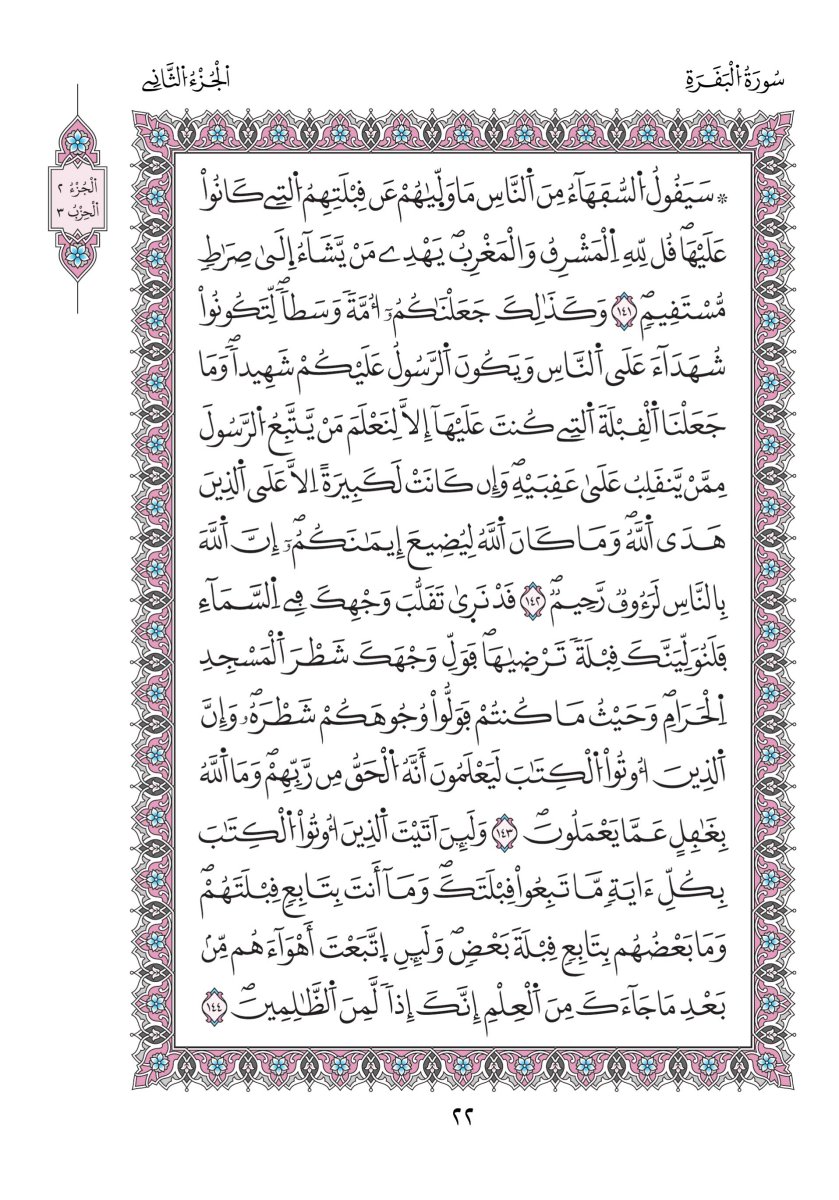 سُورَةُ اُلْبَقَرَةِ
اُلْجُزْءُ اُلثَّانِے
اَلْجُزْءُ ٢
اَلْحِزْبُ ٣
۞ سَيَقُولُ اُلسُّفَهَآءُ مِنَ اَلنَّاسِ مَا وَلّ۪يٰهُمْ عَن قِبْلَتِهِمُ اُلتِے كَانُواْ
عَلَيْهَاۖ قُل لِّلهِ اِلْمَشْرِقُ وَالْمَغْرِبُۖ يَهْدِے مَنْ يَّشَآءُ اِ۪لَىٰ صِرَٰطٖ
مُّسْتَقِيمٖۖ ١٤١ وَكَذَٰلِكَ جَعَلْنَٰكُمُۥٓ أُمَّةٗ وَسَطاٗ لِّتَكُونُواْ
شُهَدَآءَ عَلَى اَلنَّاسِ وَيَكُونَ اَلرَّسُولُ عَلَيْكُمْ شَهِيداٗۖ وَمَا
جَعَلْنَا اَلْقِبْلَةَ اَلتِے كُنتَ عَلَيْهَآ إِلَّا لِنَعْلَمَ مَنْ يَّتَّبِعُ اُلرَّسُولَ
مِمَّنْ يَّنقَلِبُ عَلَىٰ عَقِبَيْهِۖ وَإِن كَانَتْ لَكَبِيرَةً اِلَّا عَلَى اَلذِينَ
هَدَى اَللَّهُۖ وَمَا كَانَ اَللَّهُ لِيُضِيعَ إِيمَٰنَكُمُۥٓۖ إِنَّ اَللَّهَ
بِالنَّاسِ لَرَءُوفٞ رَّحِيمٞۖ ١٤٢ قَدْ نَر۪يٰ تَقَلُّبَ وَجْهِكَ فِے اِلسَّمَآءِ
فَلَنُوَلِّيَنَّكَ قِبْلَةٗ تَرْض۪يٰهَاۖ فَوَلِّ وَجْهَكَ شَطْرَ اَلْمَسْجِدِ
اِلْحَرَامِۖ وَحَيْثُ مَا كُنتُمْ فَوَلُّواْ وُجُوهَكُمْ شَطْرَهُۥۖ وَإِنَّ
اَلذِينَ أُوتُواْ اُلْكِتَٰبَ لَيَعْلَمُونَ أَنَّهُ اُلْحَقُّ مِن رَّبِّهِمْۖ وَمَا اَللَّهُ
بِغَٰفِلٍ عَمَّا يَعْمَلُونَۖ ١٤٣ وَلَئِنَ اَتَيْتَ اَلذِينَ أُوتُواْ اُلْكِتَٰبَ
بِكُلِّ ءَايَةٖ مَّا تَبِعُواْ قِبْلَتَكَۖ وَمَآ أَنتَ بِتَابِعٖ قِبْلَتَهُمْۖ
وَمَا بَعْضُهُم بِتَابِعٖ قِبْلَةَ بَعْضٖۖ وَلَئِنِ اِتَّبَعْتَ أَهْوَآءَهُم مِّنۢ
بَعْدِ مَا جَآءَكَ مِنَ اَلْعِلْمِ إِنَّكَ إِذاٗ لَّمِنَ اَلظَّٰلِمِينَۖ ١٤٤
٢٢